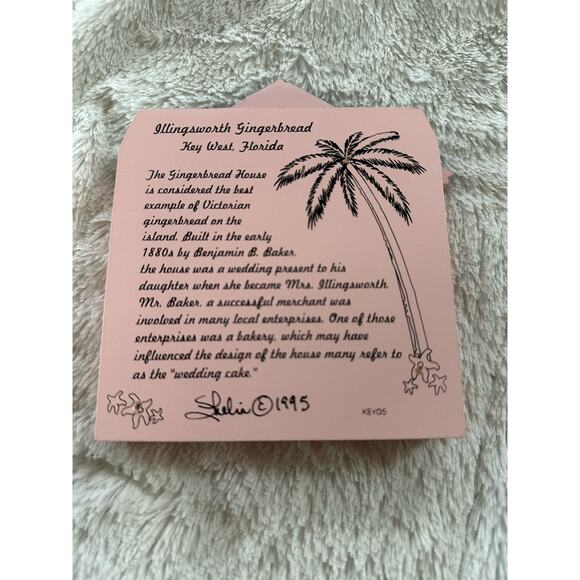 Illingsworth Gingerbread
Key West, Florida
The Gingerbread House
is considered the best
example of Victorian
gingerbread on the
island. Built in the early
1880s by Benjamin B. Baker,
the house was a wedding present to his
daughter when she became Mrs. Illingsworth.
Mr. Baker, a successful merchant was
involved in many local enterprises. One of those
enterprises was a bakery, which may have
influenced the design of the house many refer to
as the "wedding cake."
Shelia ©1995
KEY05